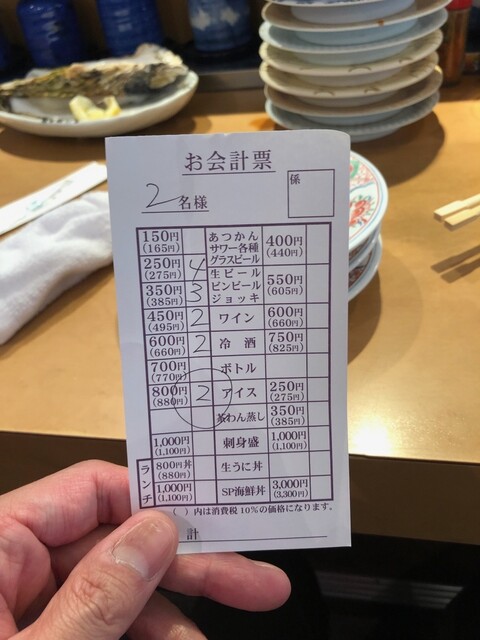 お会計票
2名様
係
150円
(165円)
250円 4
(275円)
350円 3
(385円)
450円 2
(495円)
600円 2
(660円)
700円
(770円)
800円 2
(880円)
1,000円
(1,100円)
ランチ
800円丼
(880円)
1,000円
(1,100円)
あつかん
サワー各種
グラスビール
400円
(440円)
生ビール
ビンビール
ジョッキ
550円
(605円)
ワイン
600円
(660円)
冷酒
750円
(825円)
ボトル
アイス
250円
(275円)
茶わん蒸し
350円
(385円)
刺身盛
1,000円
(1,100円)
生うに丼
SP海鮮丼
3,000円
(3,300円)
( )内は消費税10%の価格になります。
計